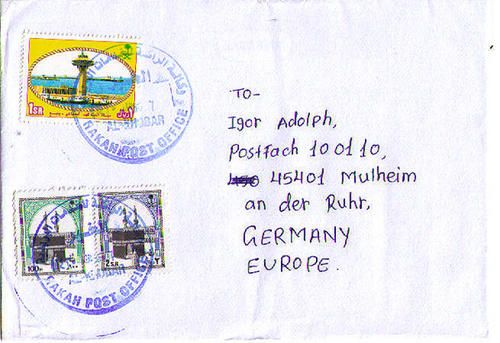 1SR
AL-KHOBAR
RAKAH POST OFFICE
100
2SR
RAKAH POST OFFICE
TO-
Igor Adolph,
Postfach 10 01 10,
45401 Mulheim
an der Ruhr,
GERMANY
EUROPE.